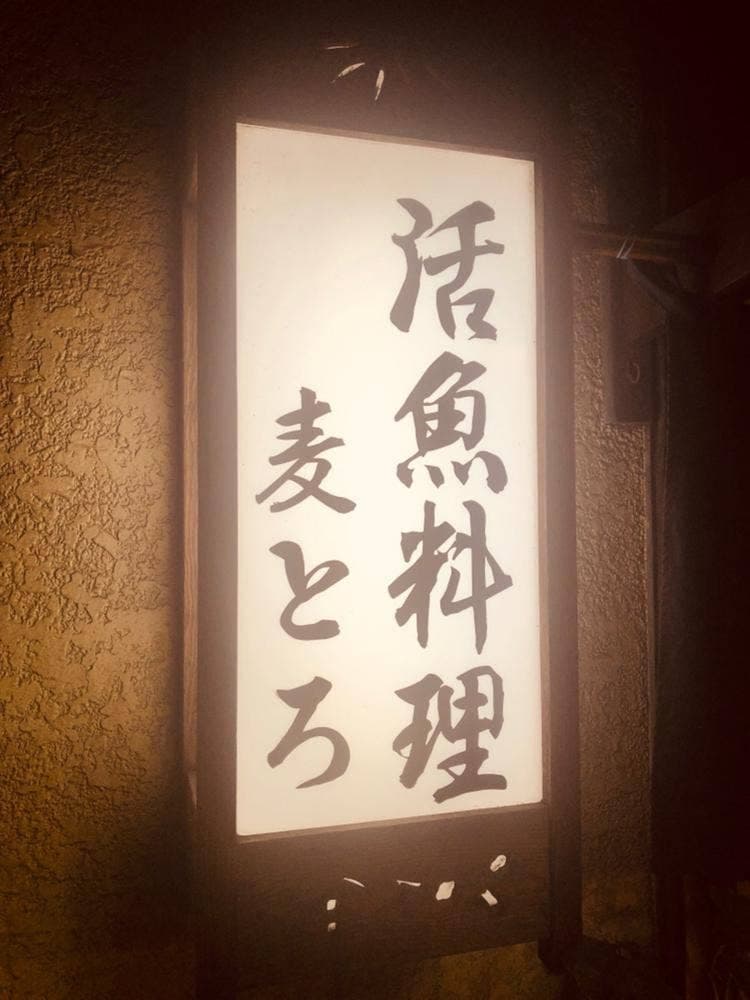 活魚料理
麦とろ